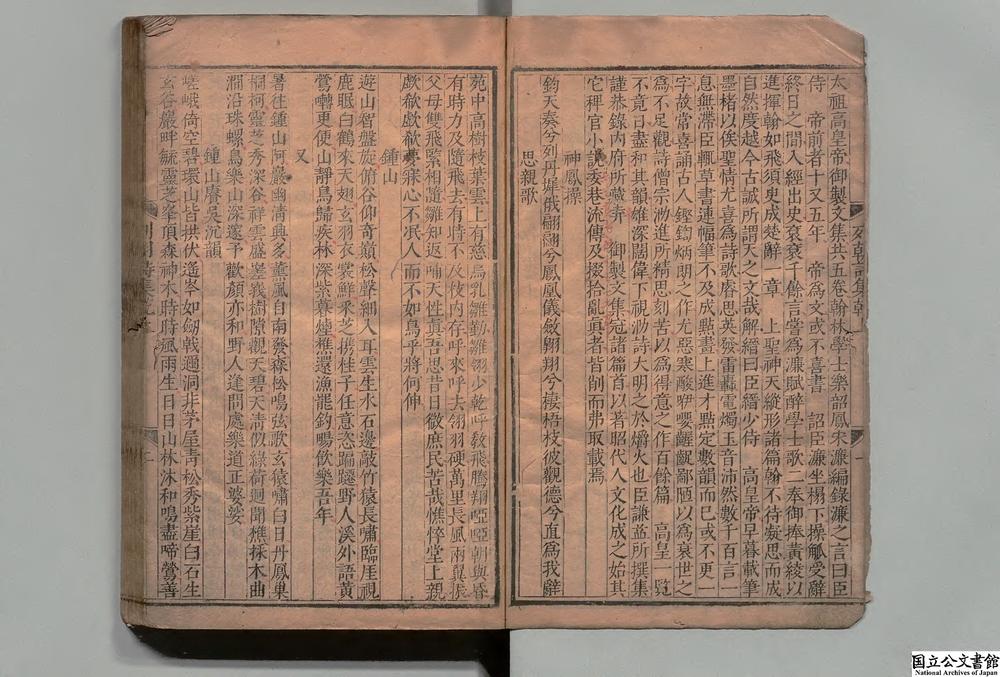 太祖高皇帝御製文集共五卷翰林學士樂韶鳳宋濂編錄濂之言曰臣
侍　帝前者十又五年　帝為文或不喜書　詔臣濂坐榻下操觚受辭
終日之間入經出史袞袞千餘言嘗為濂賦醉學士歌二奉御捧黃綾以
進揮翰如飛須臾成楚辭一章　上聖神天縱形諸篇翰不待凝思而成
自然度越今古誠所謂天之文哉解縉曰臣縉少侍　高皇帝早暮載筆
墨楮以俟聖情尤喜為詩歌睿思英發雷轟電燭玉音沛然數千百言一
息無滯臣輒草書連幅筆不及成點畫上進才點定數韻而已或不更一
字故常喜誦古人鏗鍧炳朗之作尤惡寒酸咿嚶齷齪鄙陋以為衰世之
為不足觀詩僧宗泐進所精思刻苦以為得意之作百餘篇　高皇一覽
不竟日盡和其韻雄深闊偉下視泐詩大明之於爝火也臣謙益所撰集
謹恭錄內府所藏弆　御製文集冠諸篇首以著昭代人文化成之始其
它稗官小說委巷流傳及掇拾亂真者皆削而弗取載焉
神鳳操
鈞天奏兮列丹墀俄翩翩兮鳳凰儀斂翱翔兮棲梧枝彼觀德兮直為我辭
思親歌
苑中高樹枝葉雲上有慈烏乳雛勤雛翎少乾呼教飛騰翔啞啞朝與昏
有時力及隨飛去有時不及枝內存呼來呼去翎羽硬萬里長風兩翼振
父母雙飛緊相隨雛知返哺天性真吾思昔日微庶民苦哉憔悴堂上親
歔欷歔欷夢寐心不泯人而不如鳥乎將何伸
鍾山
遊山智盤旋俯谷仰奇巔松聲細入耳雲生水石邊敲竹猿長嘯臨厓視
鹿眠白鶴來天翅玄羽衣裳鮮采芝携桂子任意恣蹁躚野人溪外語黃
鶯囀更便山靜鳥歸疾林深紫暮煙樵還漁罷釣暢飲樂吾年
又
暑往鍾山阿巖幽清典多薰風自南發森松鳴弦歌玄猿嘯白日丹鳳巢
桐柯靈芝秀深谷祥雲盛嵳峩樹隙觀天碧天清似綠荷迴聞樵採木曲
澗沿珠螺鳥樂山深邃予歡顏亦和野人逢問處樂道正婆娑
鍾山賡吳沉韻
嵯峨倚空碧環山皆拱伏遙岑如劒戟邇洞非茅屋青松秀紫崖白石生
玄谷巖畔毓靈芝峯頂森神木時時風雨生日日山林沐和鳴盡啼鶯善
列朝詩集乾
一
国立公文書館
National Archives of Japan